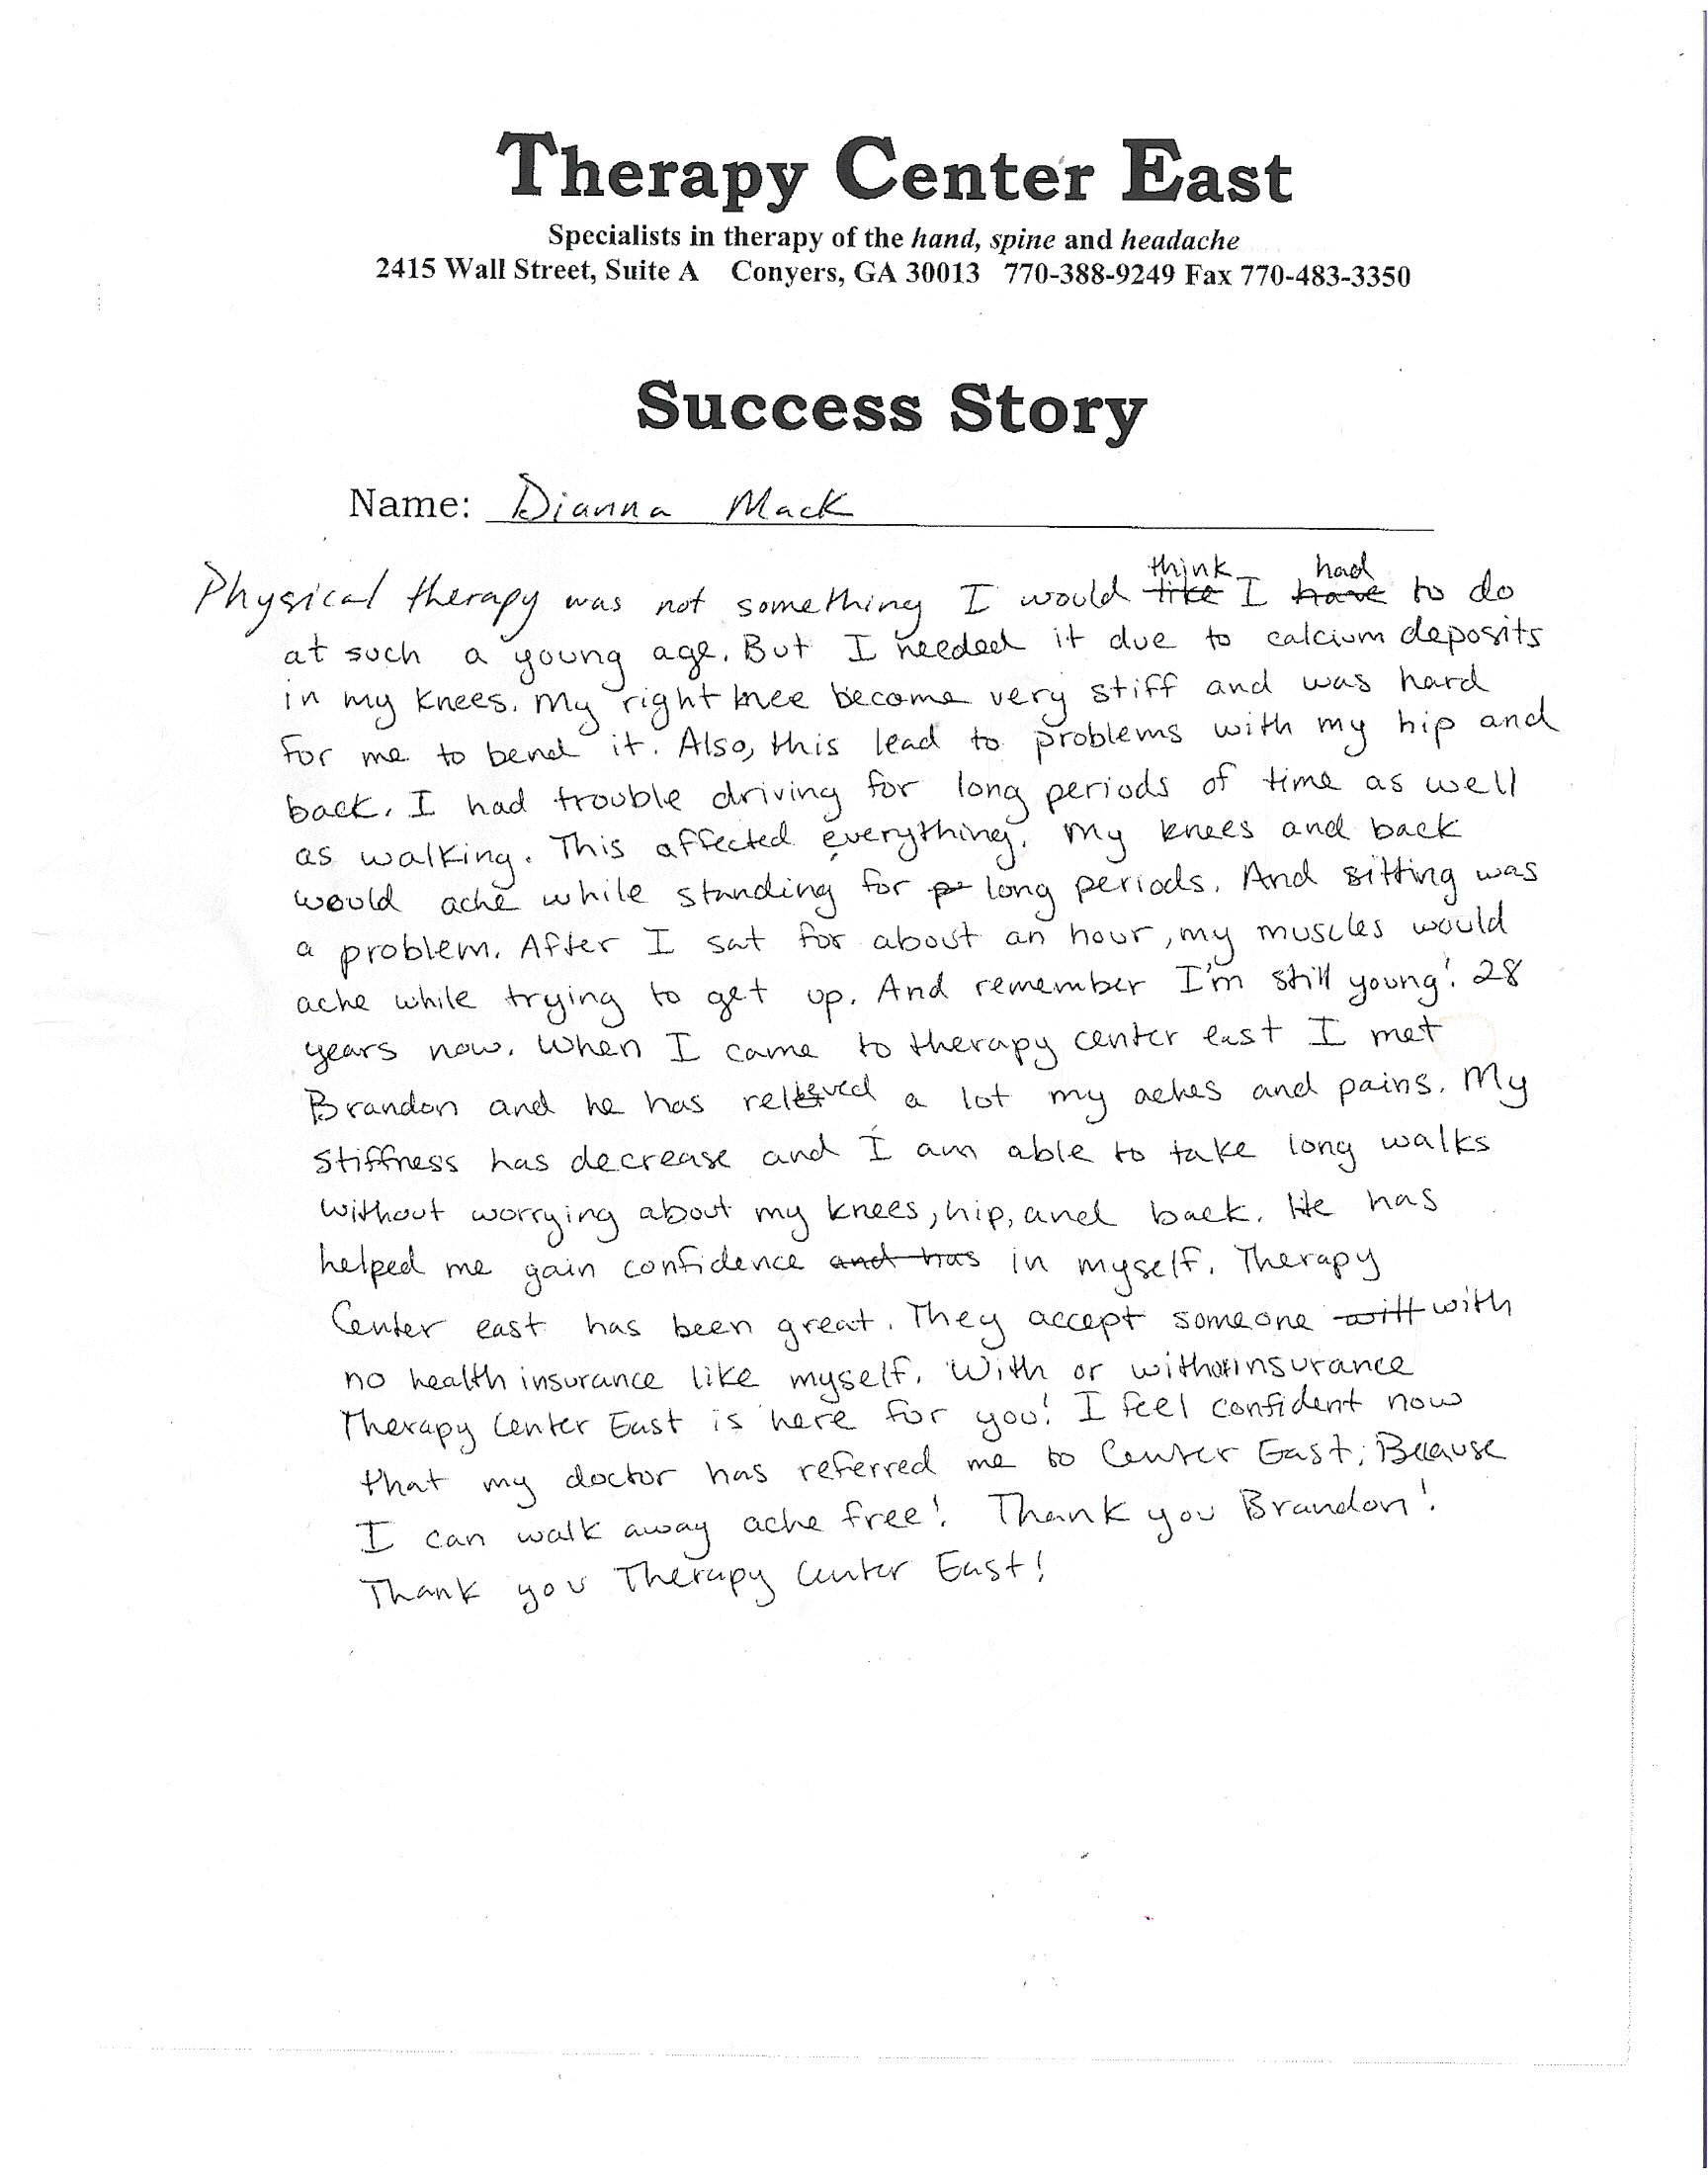 Therapy Center East
Specialists in therapy of the hand, spine and headache
2415 Wall Street, Suite A Conyers, GA 30013 770-388-9249 Fax 770-483-3350
Success Story
Name: Dianna Mack
think had
Physical therapy was not something I would like I have to do
at such a young age. But I needed it due to calcium deposits
in my knees. My right knee become very stiff and was hard
for me to bend it. Also, this lead to problems with my hip and
back. I had trouble driving for long periods of time as well
as walking. This affected everything. My knees and back
would ache while standing for pe long periods. And sitting was
a problem. After I sat for about an hour, my muscles would
ache while trying to get up. And remember I'm still young! 28
years now. When I came to therapy center east I met
Brandon and he has relieved a lot my aches and pains. My
stiffness has decrease and I am able to take long walks
without worrying about my knees, hip, and back. He has
helped me gain confidence and has in myself. Therapy
Center east has been great. They accept someone will with
no health insurance like myself. With or without insurance
Therapy Center East is here for you! I feel confident now
that my doctor has referred me to Center East; Because
I can walk away ache free! Thank you Brandon!
Thank you Therapy Center East!